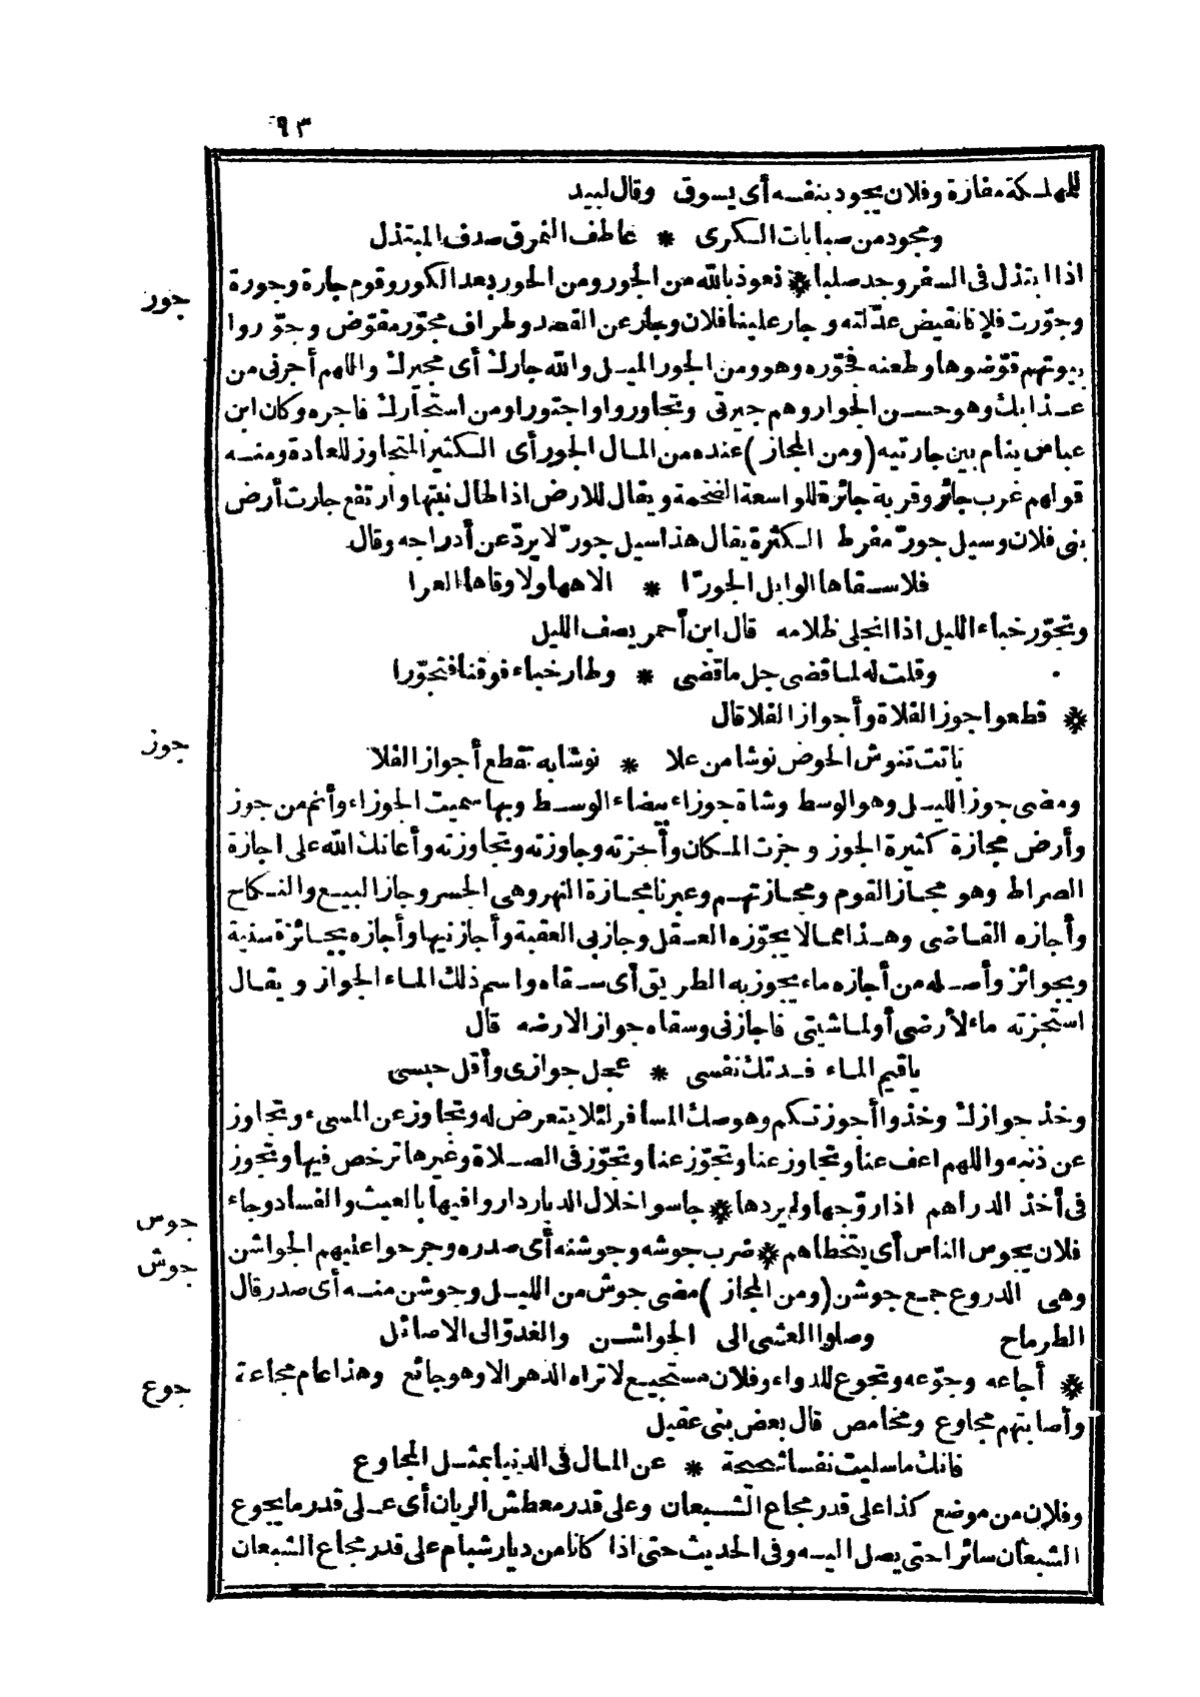 ٩٣
للمهلكة مفازة وفلان يجود بنفسه أى يسوق وقال لبيد
ومجود من صبابات الكرى * عاطف النمرق صدق المبتذل
اذا ابتذل فى السفر وجد صلبا * نعوذ بالله من الجور ومن الحور بعد الكور وقوم جارة وجورة
جور
وجوّرت فلانا نقيض عدّلته وجار علينا فلان وجار عن القصد وطراف مجوّر مقوّض وجوّروا
بيوتهم قوّضوها وطعنه فجوّره وهو من الجور الميل والله جارك أى مجيرك واللهم أجرنى من
عذابك وهو حسن الجوار وهم جيرتى وتجاوروا واجتوروا ومن استجارك فاجره وكان ابن
عباس ينام بين جارتيه (ومن المجاز) عنده من المال الجور أى الكثير المتجاوز للعادة ومنه
قولهم غرب جائر وقربة جائزة للواسعة الضخمة ويقال للارض اذا طال نبتها وارتفع جارت أرض
بنى فلان وسيل جورّ مفرط الكثرة يقال هذا سيل جورّ لا يردّ عن أدراجه وقال
فلا سقاها الوابل الجورّا * الاهها ولا وقاها العرا
وتجوّر خباء الليل اذا انجلى ظلامه قال ابن أحمر يصف الليل
وقلت له لما قضى جل ما قضى * وطار خباء فوقنا فتجوّرا
* قطعوا جوز الفلاة وأجواز الفلا قال
جوز
باتت تنوش الحوض نوشا من علا * نوشا به تقطع أجواز الفلا
ومضى جوز الليل وهو الوسط وشاة جوزاء بيضاء الوسط وبها سميت الجوزاء وأنم من جوز
وأرض مجازة كثيرة الجوز وجزت المكان وأجزته وجاوزته وتجاوزته وأعانك الله على اجازة
الصراط وهو مجاز القوم ومجازتهم وعبرنا مجازة النهر وهى الجسر وجاز البيع والنكاح
وأجازه القاضى وهذا مما لا يجوّزه العقل وجاز بى العقبة وأجازنيها وأجازه بجائزة سنية
وبجوائز وأصله من أجازه ماء يجوز به الطريق أى سقاه واسم ذلك الماء الجواز ويقال
استجزته ماء لأرضى أو لماشيتى فاجازنى وسقاه جواز الارضه قال
يا قيم الماء فدتك نفسى * عجل جوازى وأقل حبسى
وخذ جوازك وخذوا أجوزتكم وهو صك المسافر لئلا يتعرض له وتجاوز عن المسىء وتجاوز
عن ذنبه واللهم اعف عنا وتجاوز عنا وتجوّز عنا وتجوّز فى الصلاة وغيرها ترخص فيها وتجوز
فى أخذ الدراهم اذا روّجها ولم يردها * جاسوا خلال الديار داروا فيها بالعيث والفساد وجاء
جوس
فلان يجوس الناس أى يتخطاهم * ضرب جوشه وجوشنه أى صدره وجرحوا عليهم الجواشن
جوش
وهى الدروع جمع جوشن (ومن المجاز) مضى جوش من الليل وجوشن منه أى صدر قال
الطرماح وصلوا العشى الى الجواشن والغدوّ الى الاصائل
* أجاعه وجوّعه وتجوع للدواء وفلان مستجيع لا تراه الدهر الا وهو جائع وهذا عام مجاعة
جوع
وأصابتهم مجاوع ومخامص قال بعض بنى عقيل
فانك ما سليت نفسا شحيحة * عن المال فى الدنيا بمثل المجاوع
وفلان من موضع كذا على قدر مجاع الشبعان وعلى قدر معطش الريان أى على قدر ما يجوع
الشبعان سائرا حتى يصل اليه وفى الحديث حتى اذا كانا من ديار شبام على قدر مجاع الشبعان